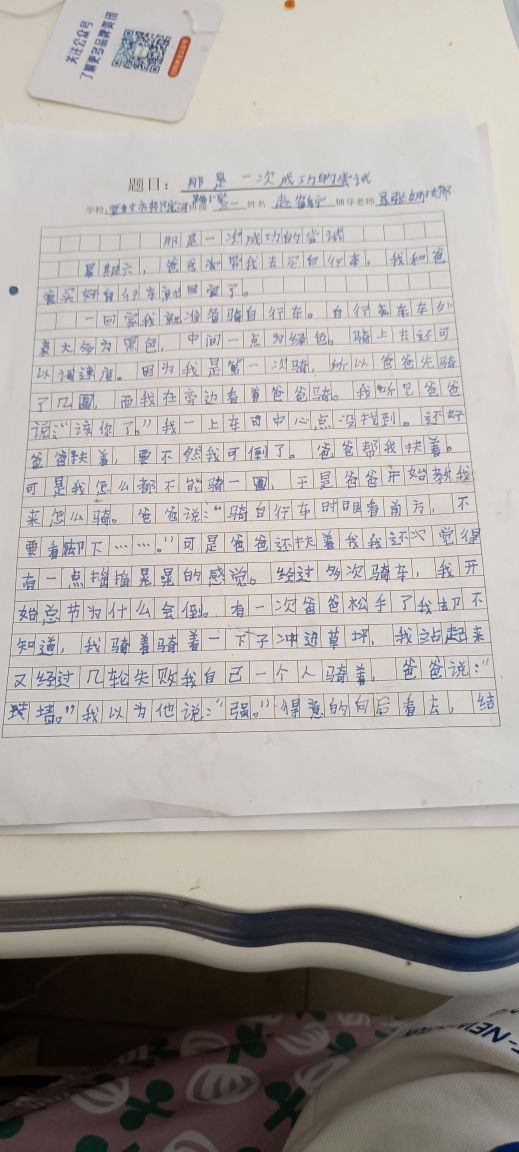 关注公众号
了解更多品牌资讯
题目：那是一次成功的尝试
学校 班级 姓名 赵 辅导老师
那是一次成功的尝试
星期六，爸爸带我去买自行车，我和爸
爸买好自行车就回家了。
一回家我就准备骑自行车。自行车车外
表大多为黑色，中间一点为绿色。骑上去还可
以调速度。因为我是第一次骑，所以爸爸先骑
了几圈，而我在旁边看着爸爸骑。我听见爸爸
说：“该你了。”我一上车可中心点没找到。还好
爸爸扶着，要不然我可倒了。爸爸帮我扶着。
可是我怎么都不能骑一圈，于是爸爸开始教我
来怎么骑。爸爸说：“骑自行车时眼看前方，不
要看脚下……。”可是爸爸还扶着我我还 觉得
有一点摇摇晃晃的感觉。经过多次骑车，我开
始总节为什么会倒。有一次爸爸松手了我却不
知道，我骑着骑着一下子冲进草坪，我站起来
又经过几轮失败我自己一个人骑着，爸爸说：“
墙。”我以为他说：“强。”得意的向后看去，结